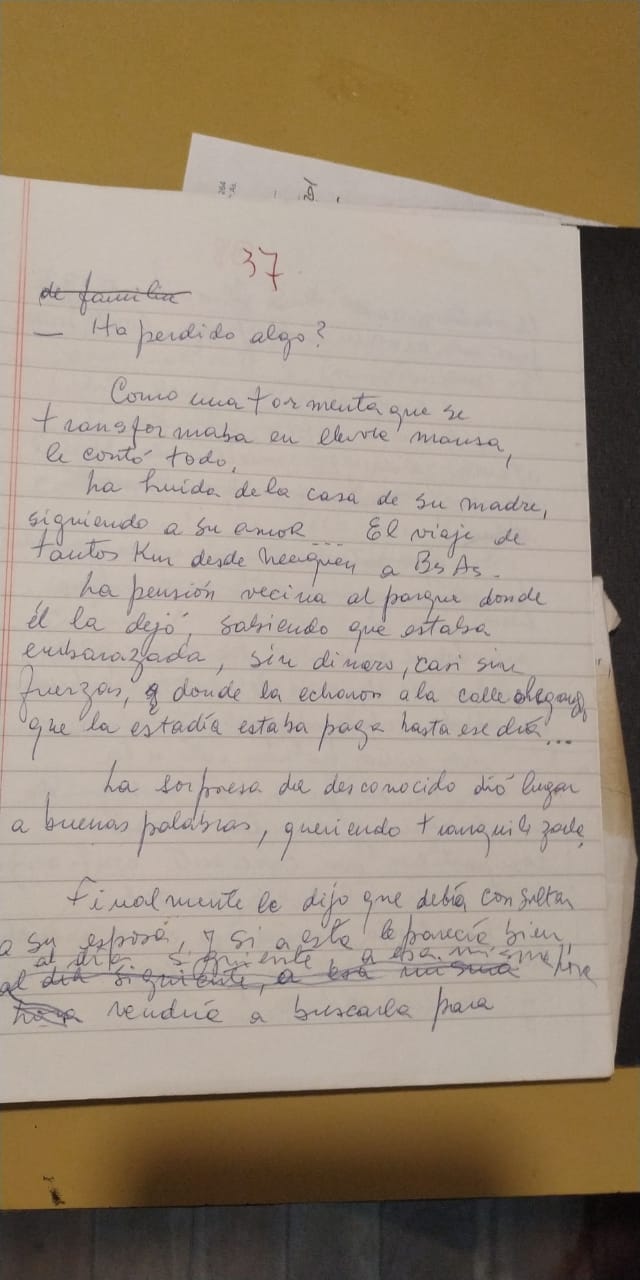 37
de familia
— Ha perdido algo?
Como una tormenta que se
transformaba en lluvia mansa,
le contó todo.
La huida de la casa de su madre,
siguiendo a su amor... El viaje de
tantos Km desde Neuquen a Bs As.
La pensión vecina al parque donde
él la dejó, sabiendo que estaba
embarazada, sin dinero, casi sin
fuerzas, donde la echaron a la calle alegando
que la estadía estaba paga hasta ese día...
La sorpresa del desconocido dió lugar
a buenas palabras, queriendo tranquilizarla.
Finalmente le dijo que debía consultar
a su esposa, y si a esta le parecía bien,
al día siguiente a esa misma hora
al día siguiente, a esa misma
hora vendría a buscarla para